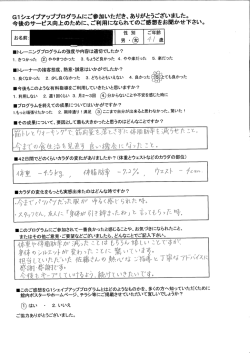 G1シェイプアッププログラムにご参加いただき、ありがとうございました。
今後のサービス向上のために、ご利用になられてのご感想をお聞かせ下さい。
お名前
性 別
男・女
ご年齢
41 歳
■トレーニングプログラムの強度や内容は適切でしたか?
1. きつかった 2. ややきつかった 3. ちょうど良かった 4. やや楽だった 5. 楽だった
■トレーナーの接客態度、態度・誘導はいかがでしたか?
1. とても良かった 2. 良かった 3. ふつう 4. あまり良くなかった 5. 良くなかった
■今後もこのような有料指導をご利用していきたいと思いますか?
1. 利用したい 2. 週1回くらい 3. 月2〜3回 4. 分からないことや不安を感じた時に
■プログラムを終えての成果についてはいかがでしたか?
1. とても良かった 2. 良かった 3. ふつう 4. あまり良くなかった 5. 良くなかった
■その成果について、要因として最も良かったと思われるのはどんなところですか?
筋トレとウォーキングで筋肉量を落とさずに体脂肪率を減らせたこと。
今までの食生活を見直す良い機会になったこと。
■42日間でどのくらいカラダの変化がありましたか?(体重とウエストなどのカラダの部位)
体重 -4.5kg、 体脂肪 -2.2%、 ウエスト -7cm
■カラダの変化をもっとも実感出来たのはどんな時ですか?
・今までパンパンだった服がゆるく感じられた時。
・スタッフさん、友人に「身体が引き締まったね」って言ってもらった時。
■このプログラムにご参加されて一番良かったと感じることや、お気づきになられたこと、
またはその他ご意見・ご要望などございましたら、どんなことでもご記入下さい。
体重や体脂肪が減ったことはもちろん嬉しいことですが、
担当していただいた佐藤さんの熱心なご指導と丁寧なアドバイスに
感謝感謝です。
今後もキープしていけるよう、続けていきたいです。
■このご感想をG1シェイプアッププログラムとはどのようなものかを、多くの方へ知っていただくために
館内ポスターやホームページ、チラシ等にご掲載させていただいて宜しいでしょうか?
① はい ・ 2. いいえ
ご協力ありがとうございました。